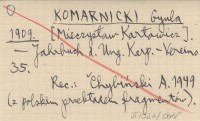 KOMARNICKI Gyula
1909. [Mieczysław Karłowicz].
— Jahrbuch d. Ung. Karp.-Vereins
35.
Rec.: Chybiński A. 1949
(z polskim przekładem fragmentów).